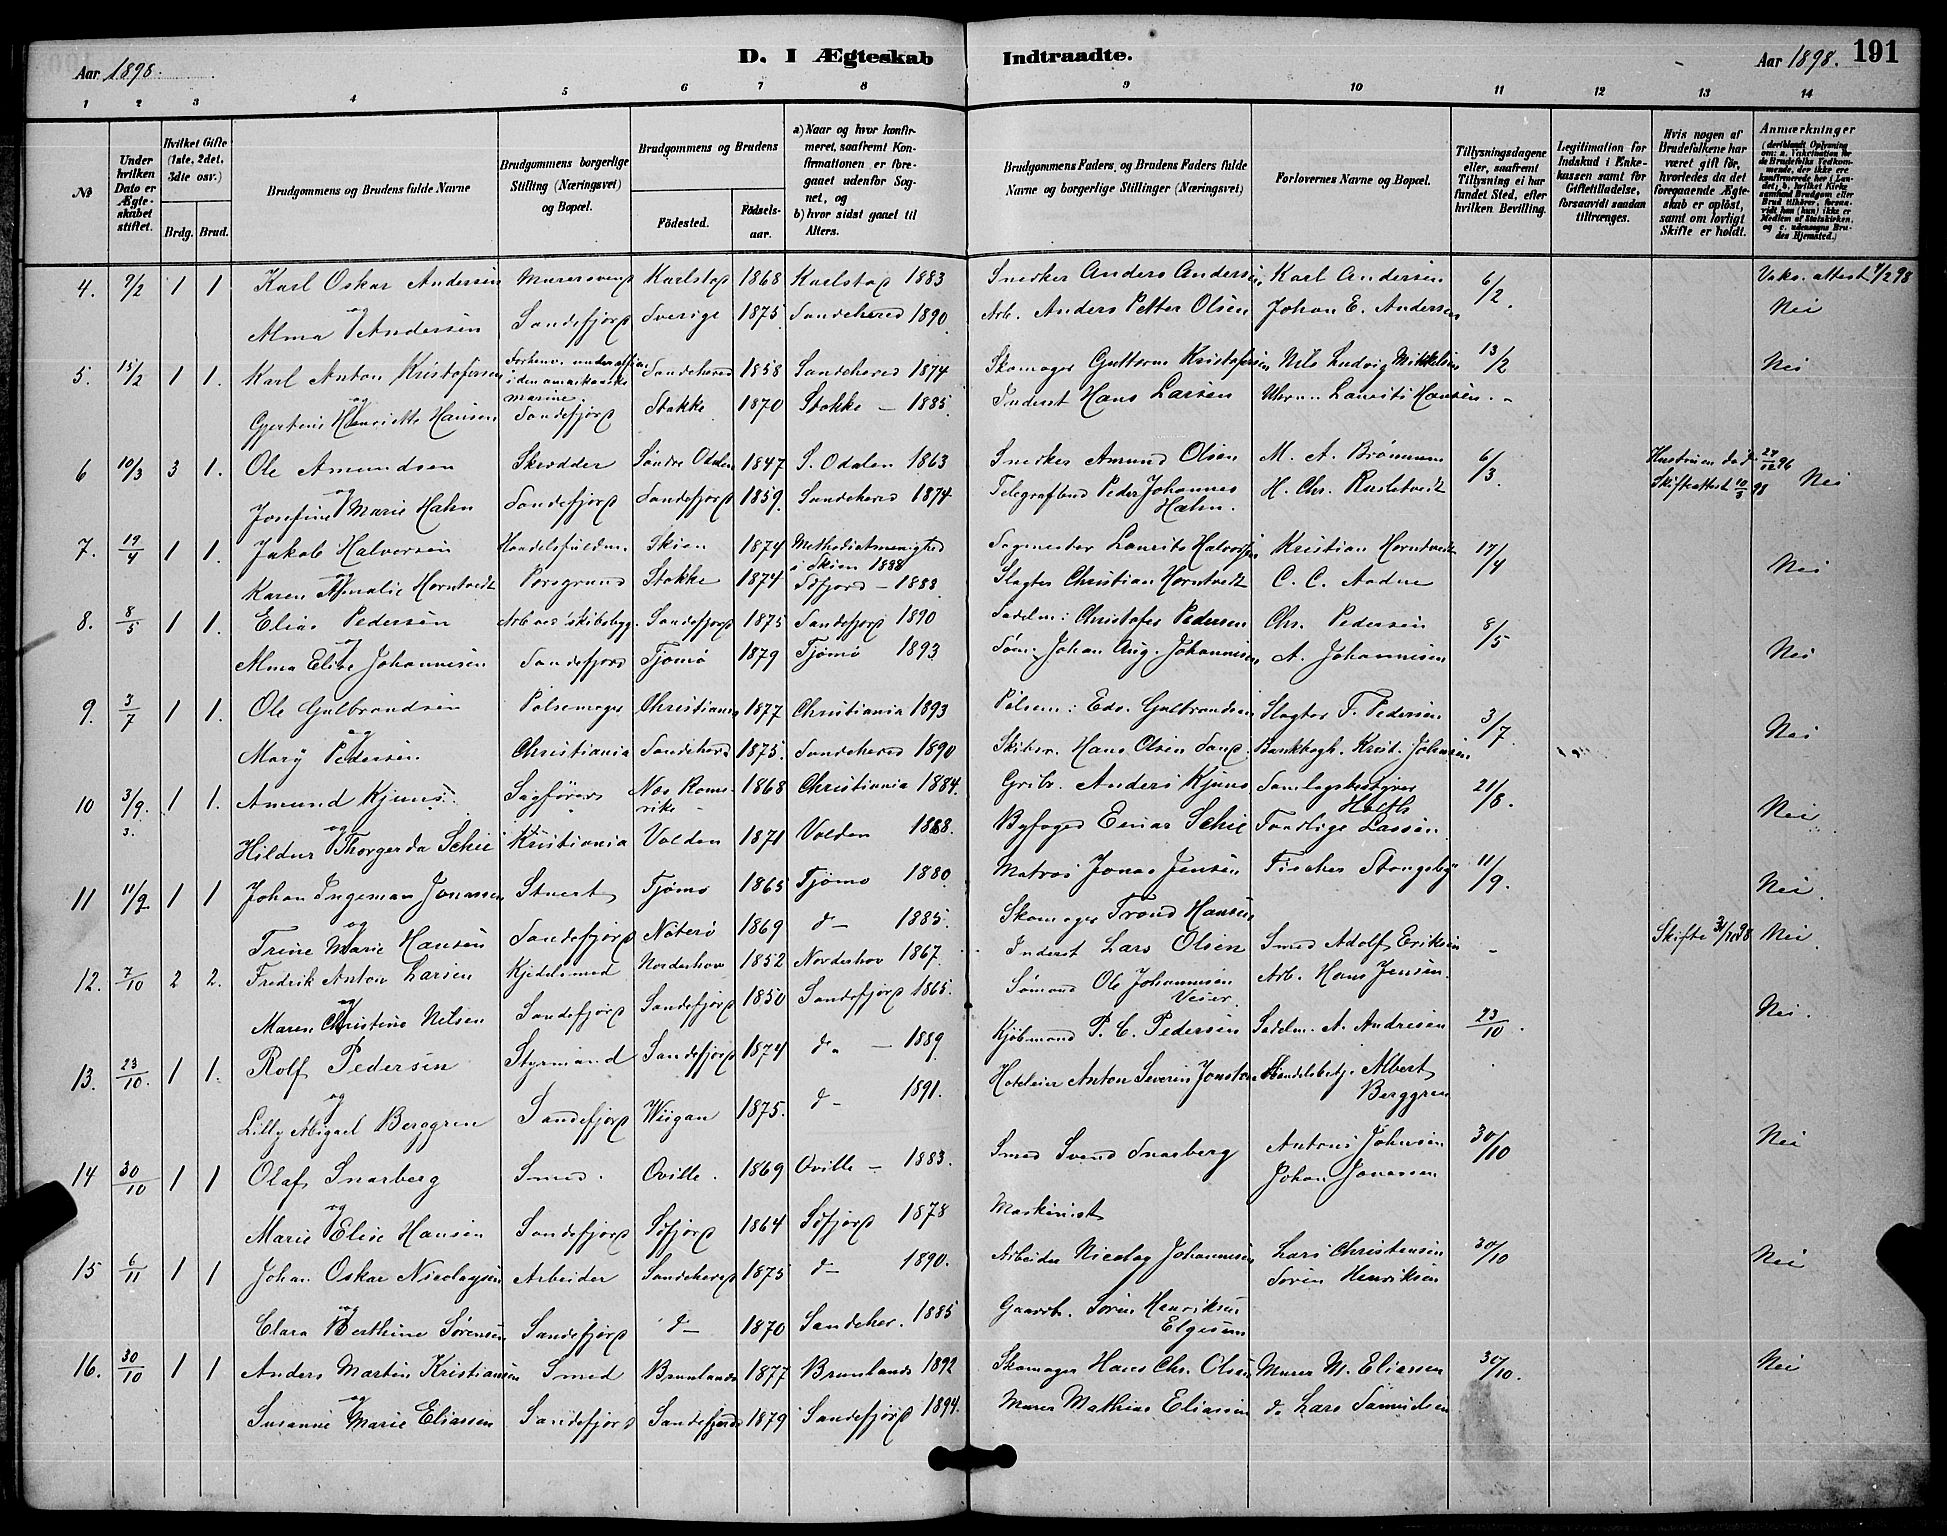 Aar 1898. D. I Ægteskab Indtraadte. Aar 1898. 191
1 2 3 4 5 6 7 8 9 10 11 12 13 14
№
Under hvilken Dato er Ægteskabet stiftet.
Hvilket Gifte (1ste, 2det, 3dte osv.)
Brdg. Brud.
Brudgommens og Brudens fulde Navne
Brudgommens borgerlige Stilling (Næringsvei) og Bopæl.
Brudgommens og Brudens
Fødested. Fødselsaar.
a) Naar og hvor konfirmeret, saafremt Konfirmationen er foregaaet udenfor Sognet, og
b) hvor sidst gaaet til Alters.
Brudgommens Faders og Brudens Faders fulde Navne og borgerlige Stillinger (Næringsvei)
Forlovernes Navne og Bopæl.
Tillysningsdagene eller, saafremt Tillysning ei har fundet Sted, efter hvilken Bevilling.
Legitimation for Indskud i Enkekassen samt for Giftetilladelse, forsaavidt saadan tiltrænges.
Hvis nogen af Brudefolkene har været gift før, hvorledes da det foregaaende Ægteskab er opløst, samt om lovligt Skifte er holdt.
Anmærkninger (deriblandt Oplysning om: a. Vakcination for de Brudefolks Vedkommende, der ikke ere konfirmerede her i Landet; b. hvilket Kirkesamfund Brudgom eller Brud tilhører, forsaavidt han (hun) ikke er Medlem af Statskirken, og c. udensogns Brudes Hjemsted.)
4. 9/2 1 1 Karl Oskar Andersen Murersvend Karlstad 1868 Karlstad 1883 Snedker Anders Andersen Karl Andersen 6/2. Vaks. attest 7/2 98
og Alma Andersen Sandefjord Sverige 1875 Sandehered 1890 Arb. Anders Petter Olsen Johan E. Andersen Nei
5. 15/2 1 1. Karl Anton Kristofersen Forhenv. underofficer i den amerikanske marine. Sandehered 1858 Sandehered 1874 Skomager Guttorm Kristofersen Nils Ludvig Mikkelsen 13/2 Nei
og Gjertine Henriette Hansen Sandefjord Stokke 1870 Stokke - 1885 Inderst Hans Larsen Uhrm. Lauritz Hansen
6 10/3 3 1. Ole Amundsen Skrædder Søndre Odalen 1847 S. Odalen 1863 Snedker Amund Olsen M. A. Brønnum 6/3. Hustruen død 24/12 96
og Josefine Marie Hahn Sandefjord Sandefjord 1859. Sandehered 1874 Telegrafbud Peder Johannes Hahn. H. Chr. Rastetvedt Skifteattest 10/3 98 Nei
7. 19/4 1 1. Jakob Halvorsen Handelsfuldm. Skien 1874 Methodistmenighed i Skien 1888 Sagmester Laurits Halvorsen Kristian Horntvedt 17/4 Nei
Karen Amalie Horntvedt Porsgrund Stokke 1874 Sdfjord - 1888 Slagter Christian Horntvedt C. C. Aadne
8. 8/5 1 1. Elias Pedersen Arb. ved skibsbygg. Sandefjord 1875 Sandefjord 1890 Sadelm: Christofer Pedersen Chr. Pedersen 8/5
og Alma Elise Johannesen Sandefjord Tjømø 1879 Tjømø 1893 Søm. Johan Aug. Johannesen A. Johannesen Nei
9. 3/7 1 1. Ole Gulbrandsen Pølsemager Christiania 1877 Christiania 1893 Pølsem: Edv. Gulbrandsen Slagter F. Pedersen 3/7. Nei
og Mary Pedersen Christiania Sandehered 1875. Sandehered 1890 Skibsr. Hans Olsen Sand. Bankbogh. Krist. Johnsen
10 3/9. 1 1. Amund Kjuus. Sagfører Nes Romerike 1868 Christiania 1884. Grbr. Anders Kjuus Samlagsbestyrer Holth 21/8. Nei
og Hildur Thorgerda Schie Kristiania Volden 1871 Volden 1888. Byfoged Einar Schie Tandlæge Lassen
11 11/9 1 1 Johan Ingeman Jonassen Stuert Tjømø 1865 Tjømø 1880. Matros Jonas Jensen Fischer Stangeby 11/9. Nei.
og Trine Marie Hansen Sandefjord Nøterø 1869 d- 1885. Skomager Trond Hansen
12. 7/10 2 2. Fredrik Anton Larsen Kjedelsmed Norderhov 1852 Norderhov 1867. Inderst Lars Olsen Smed Adolf Eriksen - Skifte 31/10 98 Nei.
og Maren Christine Nilsen Sandefjord Sandefjord 1850 Sandefjord 1865. Sømand Ole Johannesen Veier. Arb. Hans Jensen.
13. 23/10. 1 1. Rolf Pedersen Styrmand Sandefjord 1874 d. - 1889 Kjøbmand P. C. Pedersen Sadelm. A. Andresen 23/10. Nei.
og Lilly Abigael Berggren Sandefjord Wiigan 1875. d- 1891. Hoteleier Anton Severin Jonstorp Handelsbetj. Albert Berggren
14 30/10 1 1 Olaf Snarberg Smed. Oville. 1869 Oville - 1883. Smed Svend Snarberg Antons Johnsen Johan Jonassen 30/10 Nei
og Marie Elise Hansen Sandefjord Sdfjord 1864 Sdfjord 1878 Maskinist
15 6/11 1 1 Johan Oskar Nicolaysen Arbeider Sandehered 1875 d- 1890. Arbeider Nicolay Johannesen Lars Christensen Søren Henriksen 30/10 Nei
og Clara Berthine Sørensen Sandefjord d- 1870 Sandeher. 1885 Gaardb. Søren Henriksen Elgesem
16. 30/10 1 1 Anders Martin Kristiansen Smed Brunlanes 1877 Brunlanes 1892 Skomager Hans Chr. Olsen Murer M. Eliassen 30/10. Nei
og Susanne Marie Eliassen Sandefjord Sandefjord 1879 Sandefjord 1894. Murer Mathias Eliassen do Lars Samuelsen